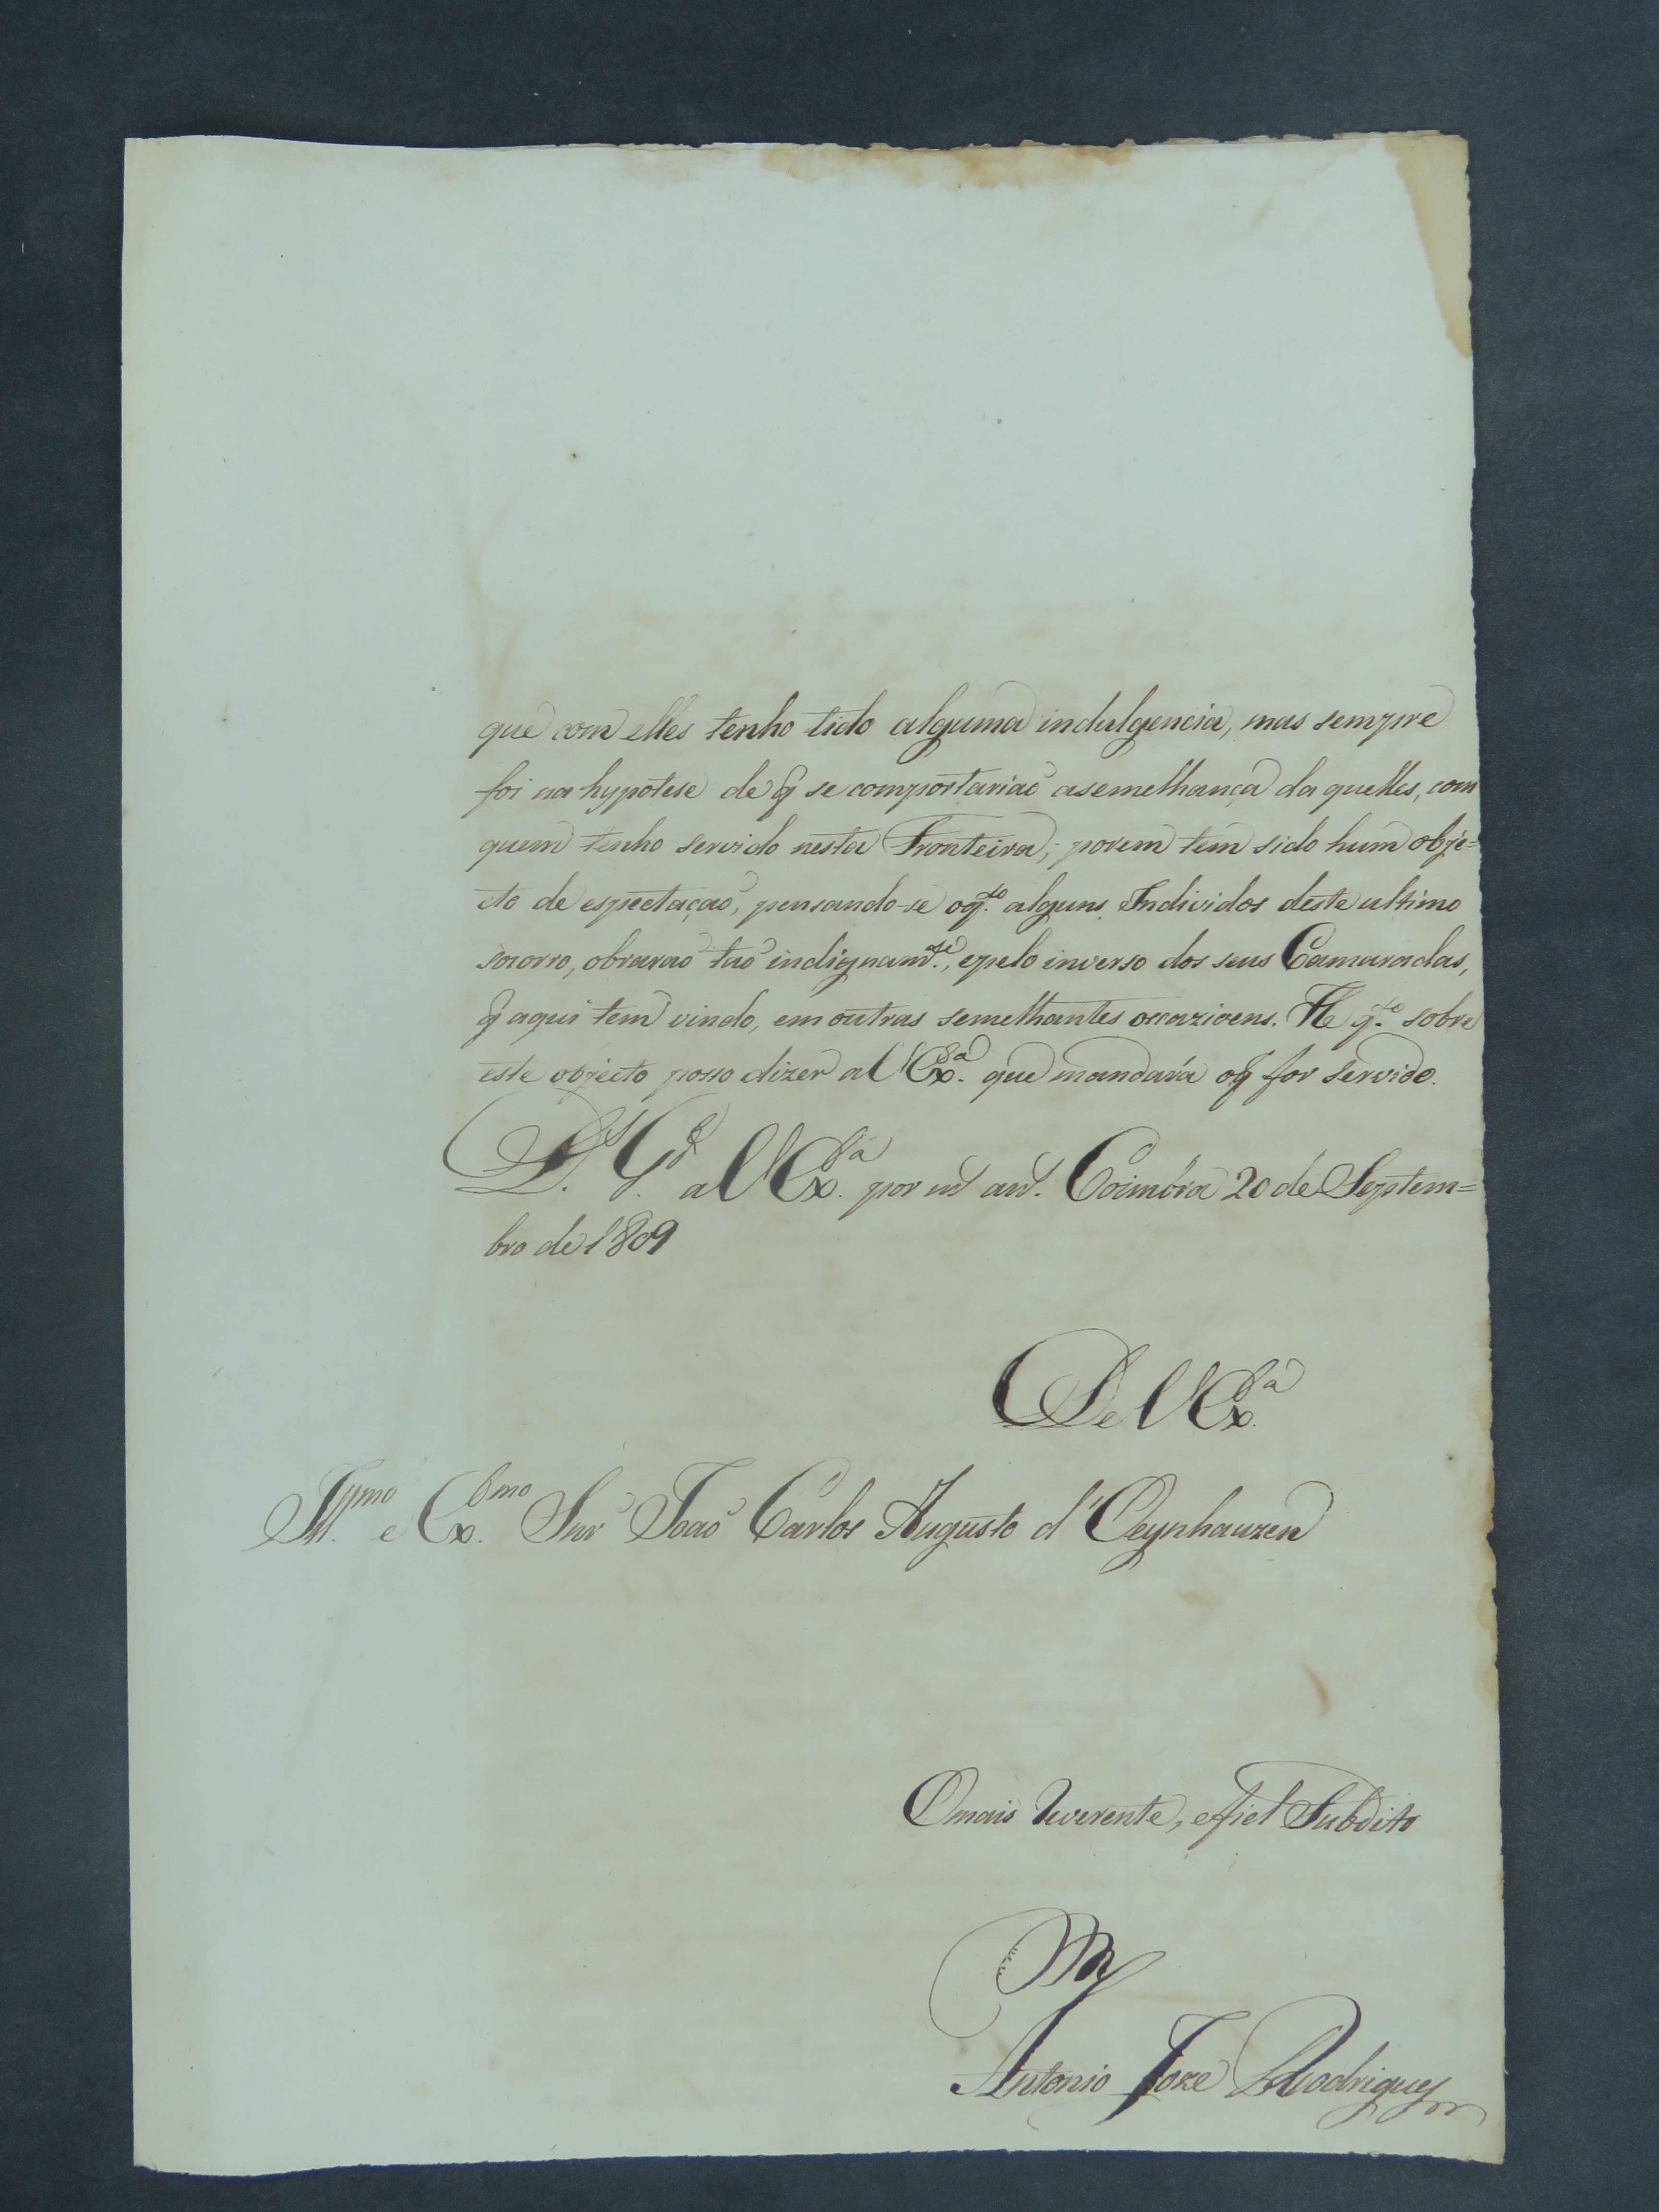 que com elles tenho tido alguma indulgencia, mas sempre
foi na hypotese de q̃ se comportariaõ asemelhança da quelles, com
quem tenho servido nesta Fronteira; porem tem sido hum obje=
cto de espectaçaõ, pensando-se oq.to alguns Individos deste ultimo
socorro, obraraõ taõ indignam.te, epelo inverso dos seus Camaradas,
q̃ aqui tem vindo, em outras semelhantes occazioens. He q.to sobre
este objecto posso dizer a V Ex.ª que mandará oq̃ for servido.
D.s G.e a V Ex.ª por m.s an.s Coimbra 20 de Septem=
bro de 1809
De V Ex.ª
Ill.mo e Ex.mo Snr Joaõ Carlos Augusto d'Oeynhauzen
Omais Reverente, efiel Subdito
Antonio Joze Rodrigues